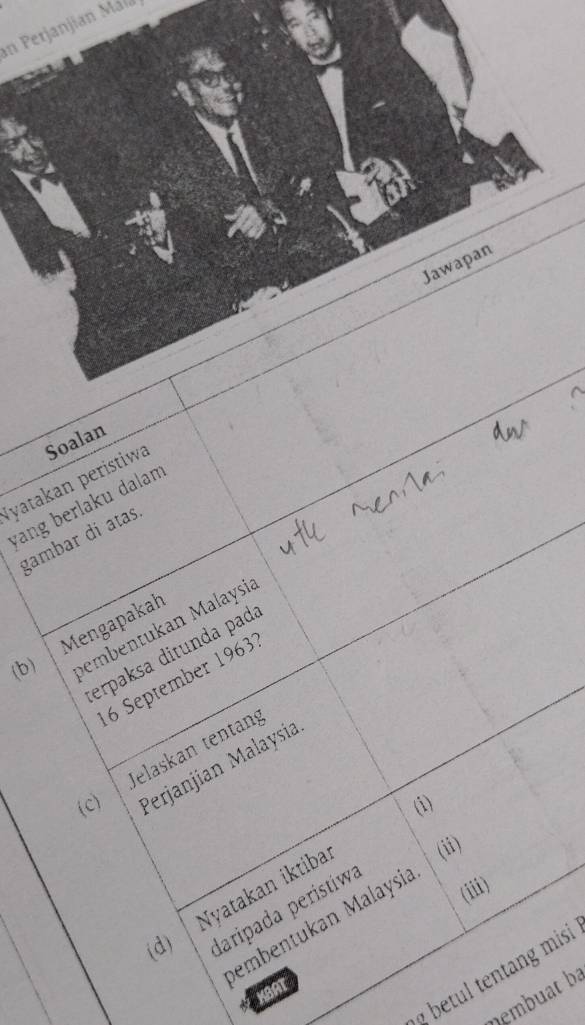 an Perjanjian
Soalan
Jawapan
Nyatakan peristiwa
yang berlaku dalam
gambar di atas.
(b)
Mengapakah
pembentukan Malaysia
terpaksa ditunda pada
16 September 1963?
utk menilai dan
(c)
Jelaskan tentang
Perjanjian Malaysia.
(d)
Nyatakan iktibar
daripada peristiwa
pembentukan Malaysia.
KBAT
(i)
(ii)
(iii)
betul tentang misi
membuat